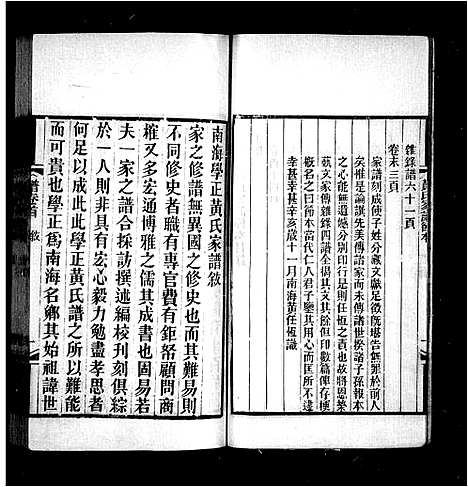 雜錄譜六十一頁
卷末三頁
家譜刻成使子姓分藏文獻足徵旣堪告無罪於先人
矣惟是論譔先芬傳諸家而未傳諸世揆諸子孫報本
之心能無遺憾分別印行是則任恆之責也故將恩榮
藝文家傳雜錄四譜倂其文其餘但印數篇俾存梗
槪名之曰節本當代仁人君子鑒其心而匡所不逮
幸甚幸甚辛亥歲十一月南海黃任恆識
南海學正黃氏家譜敘
家之修譜無異國之修史也而其難易則
不同修史者職有專官費有鉅帑顧問商
榷又多通博雅之儒其成書也固易若
夫一家之譜合採訪撰述編校刊刻俱綜
於一人則非具有宏心毅力勉盡孝思者
何足以成此此學正黃氏譜之所以難能
而可貴也學正爲南海名鄉其始祖諱世
譜卷首 敘